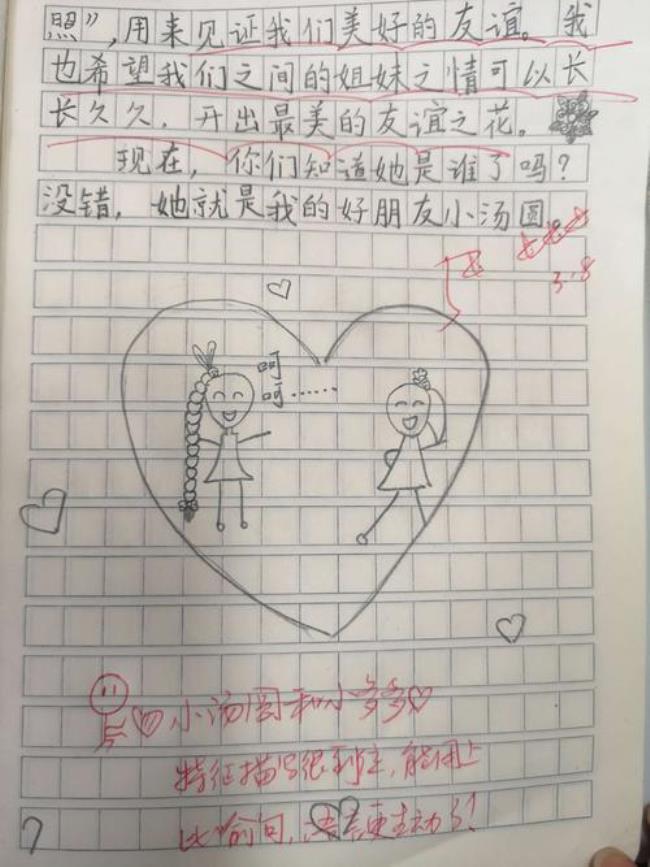 照”，用来见证我们美好的友谊。我
也希望我们之间的姐妹之情可以长
长久久，开出最美的友谊之花。
现在，你们知道她是谁了吗？
没错，她就是我的好朋友小汤圆。
3.8
呵
呵……
小汤圆和小多多
特征描写很到位，能用上
比喻句，更生动了！